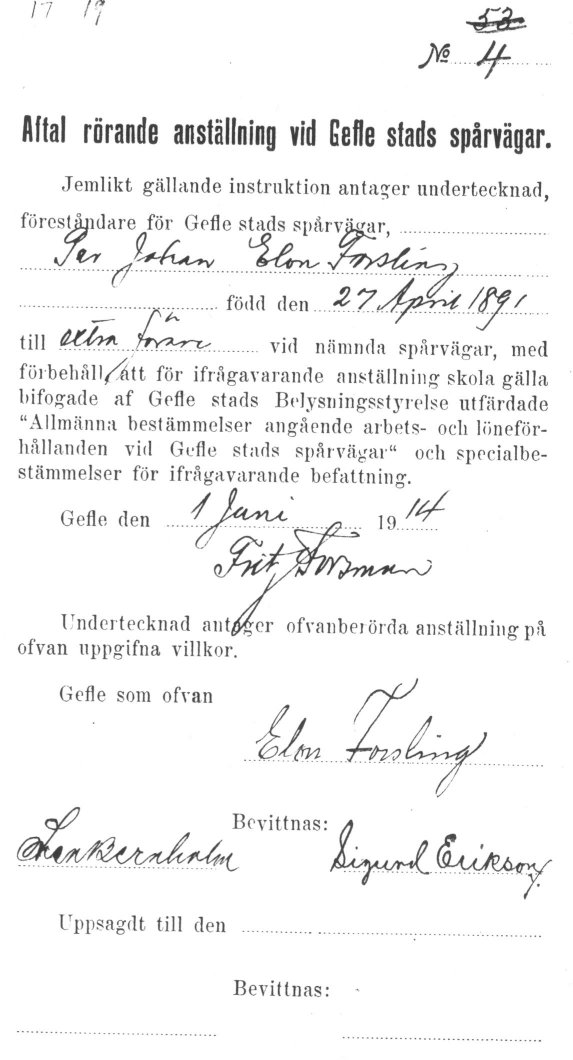 17 19
53
No 4
Aftal rörande anställning vid Gefle stads spårvägar.
Jemlikt gällande instruktion antager undertecknad,
föreståndare för Gefle stads spårvägar,
Per Johan Elon Forsling
född den 27 April 1891
till extra förare vid nämnda spårvägar, med
förbehåll, att för ifrågavarande anställning skola gälla
bifogade af Gefle stads Belysningsstyrelse utfärdade
"Allmänna bestämmelser angående arbets- och löneför-
hållanden vid Gefle stads spårvägar" och specialbe-
stämmelser för ifrågavarande befattning.
Gefle den 1 Juni 1914
Frit Forsman
Undertecknad antager ofvanberörda anställning på
ofvan uppgifna villkor.
Gefle som ofvan
Elon Forsling
Bevittnas:
Sigurd Erikson
Uppsagdt till den
Bevittnas: